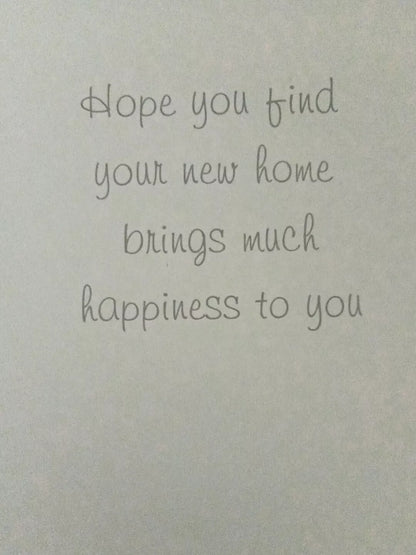 Hope you find
your new home
brings much
happiness to you